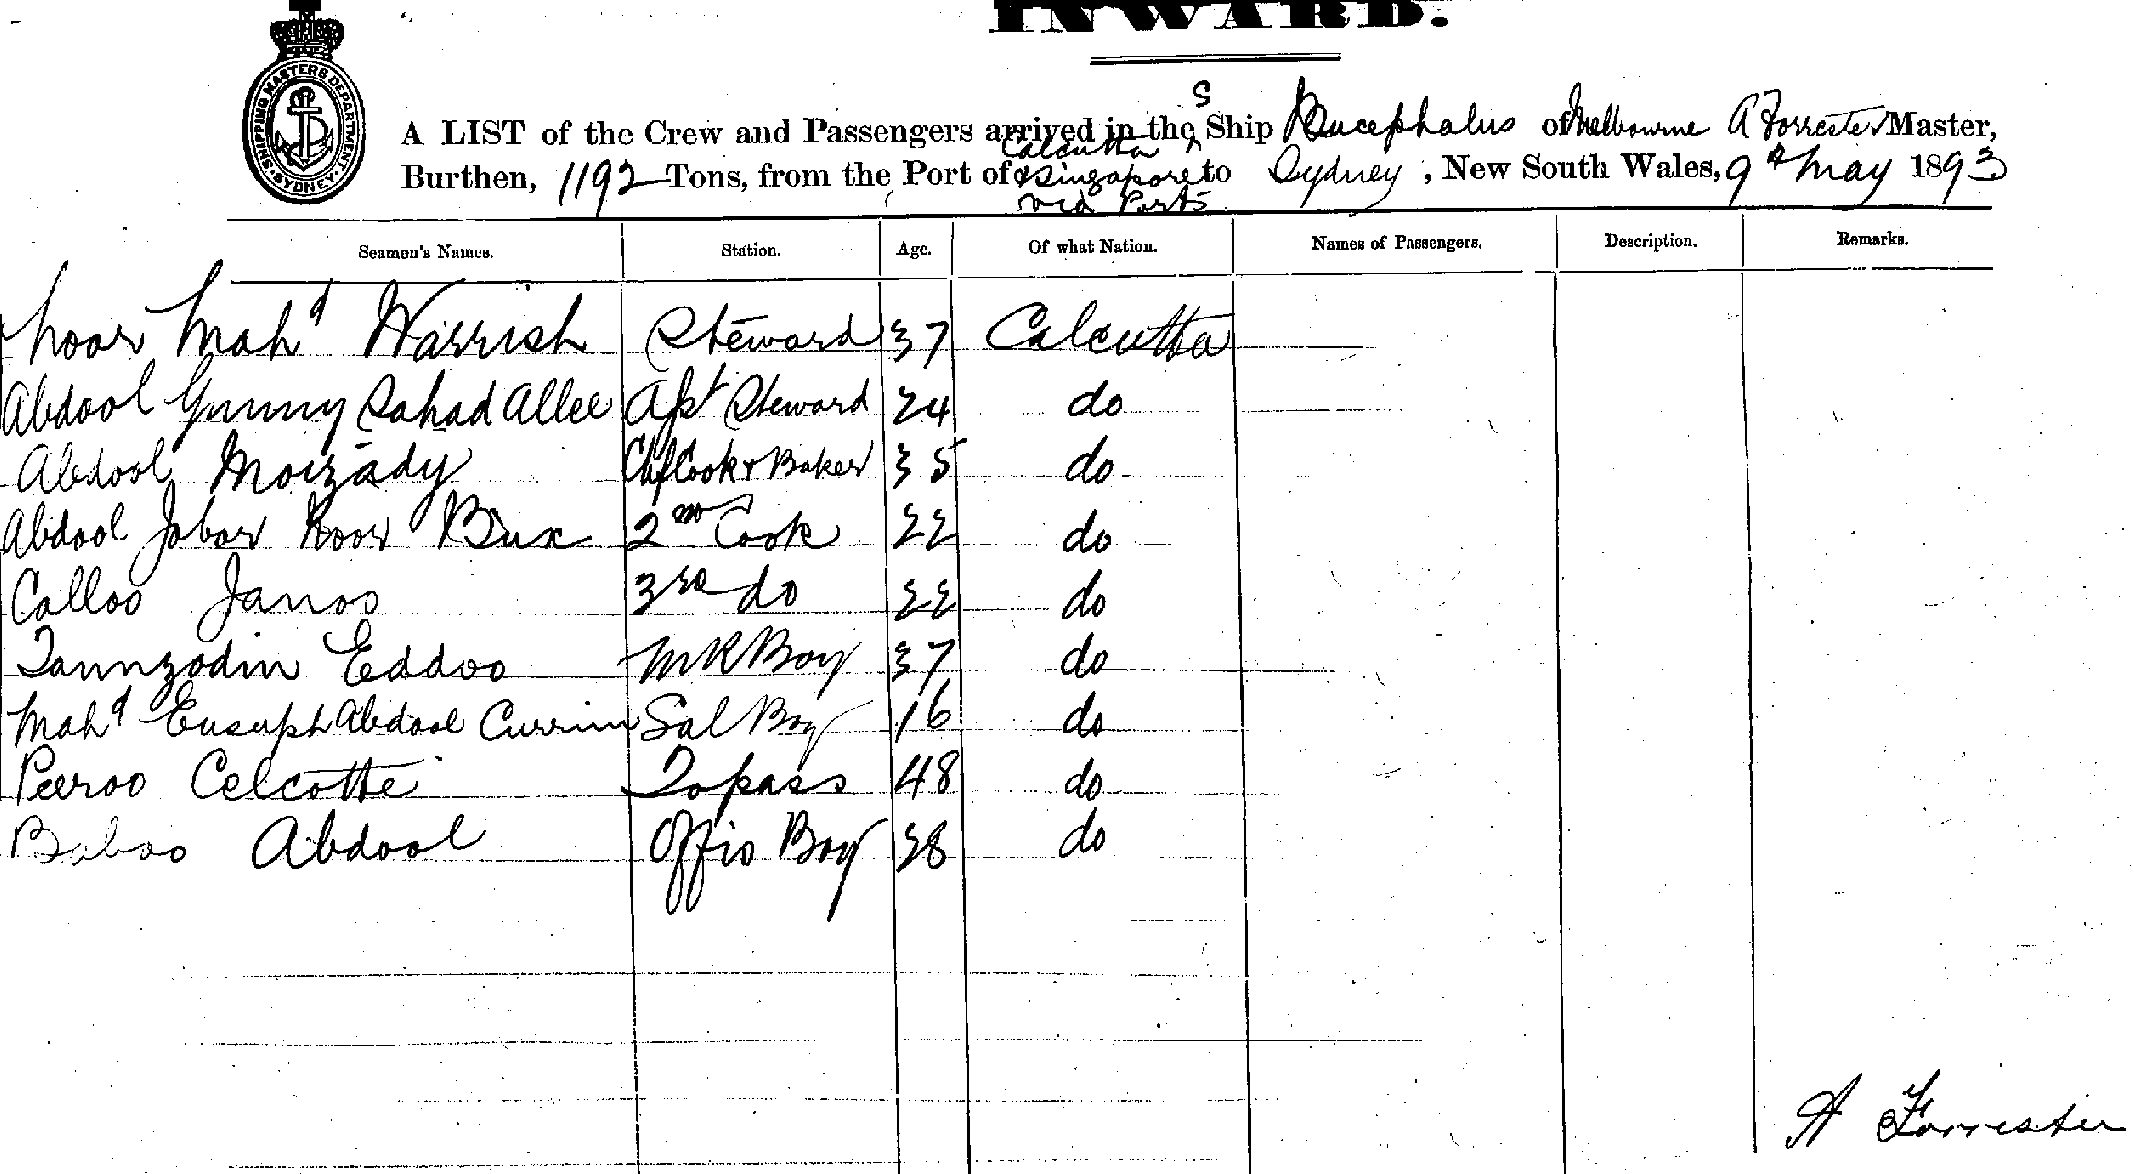 INWARD.
SHIPPING MASTERS DEPARTMENT SYDNEY
A LIST of the Crew and Passengers arrived in the S Ship Bucephalus of Melbourne A Forrester Master,
Burthen, 1192 Tons, from the Port of Calcutta & Singapore via Ports to Sydney, New South Wales, 9th May 1893
Seamen's Names. Station. Age. Of what Nation. Names of Passengers. Description. Remarks.
Noor Mahd Warrish Steward 37 Calcutta
Abdool Gunny Sahad Allee Asst Steward 24 do
Abdool Moizady Chf Cook & Baker 35 do
Abdool Jobar Noor Bux 2nd Cook 22 do
Calloo Janoo 3rd do 22 do
Tannzodin Eddoo M R Boy 37 do
Mahd Eusuph Abdool Currim Sal Boy 16 do
Peeroo Celcotte Topass 48 do
Baboo Abdool Offis Boy 38 do
A Forrester